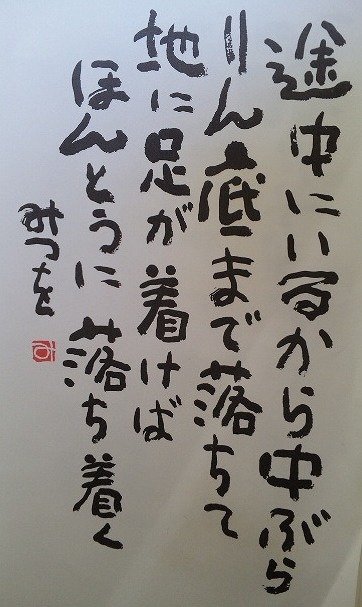 途中にいるから中ぶら
りん底まで落ちて
地に足が着けば
ほんとうに落ち着く
みつを
み